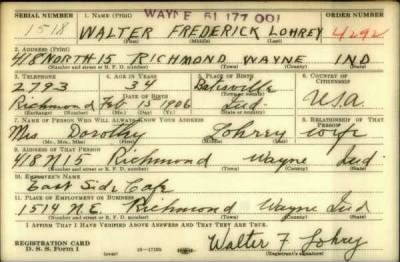 WAYNE 51 177 001
SERIAL NUMBER 1. NAME (Print) ORDER NUMBER
1518 WALTER FREDERICK LOHREY 4292
(First) (Middle) (Last)
2. ADDRESS (Print)
418 NORTH 15 RICHMOND WAYNE IND
(Number and street or R. F. D. number) (Town) (County) (State)
3. TELEPHONE 4. AGE IN YEARS 5. PLACE OF BIRTH 6. COUNTRY OF CITIZENSHIP
2793 34 Batesville
DATE OF BIRTH
Richmond Feb 13 1906 Ind. U.S.A.
(Exchange) (Number) (Mo.) (Day) (Yr.) (State or country)
7. NAME OF PERSON WHO WILL ALWAYS KNOW YOUR ADDRESS 8. RELATIONSHIP OF THAT PERSON
Mrs Dorothy Lohrey wife
(Mr., Mrs., Miss) (First) (Middle) (Last)
9. ADDRESS OF THAT PERSON
418 N 15 Richmond Wayne Ind
(Number and street or R. F. D. number) (Town) (County) (State)
10. EMPLOYER'S NAME
East Side Cafe
11. PLACE OF EMPLOYMENT OR BUSINESS
1514 N.E. Richmond Wayne Ind
(Number and street or R. F. D. number) (Town) (County) (State)
I AFFIRM THAT I HAVE VERIFIED ABOVE ANSWERS AND THAT THEY ARE TRUE.
REGISTRATION CARD
D. S. S. Form 1 16—17105 Walter F Lohrey
(Registrant's signature)